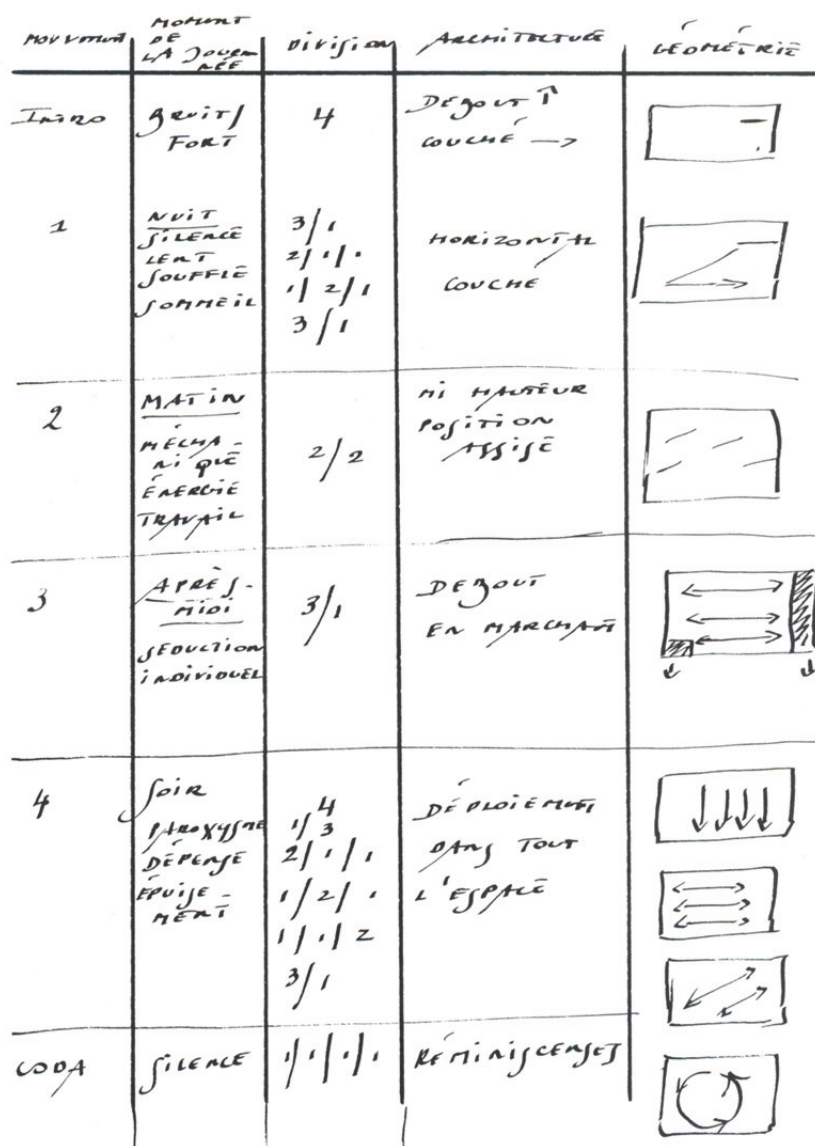 MOUVEMENT
MOMENT
DE
LA JOUR-
NÉE
DIVISION
ARCHITECTURE
GÉOMÉTRIE
INTRO
BRUIT/
FORT
4
DEBOUT ↑
COUCHÉ →
1
NUIT
SILENCE
LENT
SOUFFLE
SOMMEIL
3/1
2/1/1
1/2/1
3/1
HORIZONTAL
COUCHÉ
2
MATIN
MÉCHA-
NIQUE
ÉNERGIE
TRAVAIL
2/2
MI HAUTEUR
POSITION
ASSISE
3
APRÈS-
MIDI
SEDUCTION
INDIVIDUEL
3/1
DEBOUT
EN MARCHANT
4
SOIR
PAROXYSME
DÉPENSE
ÉPUISE-
MENT
4
1/3
2/1/1
1/2/1
1/1/2
3/1
DÉPLOIEMENT
DANS TOUT
L'ESPACE
CODA
SILENCE
1/1/1/1
RÉMINISCENSES